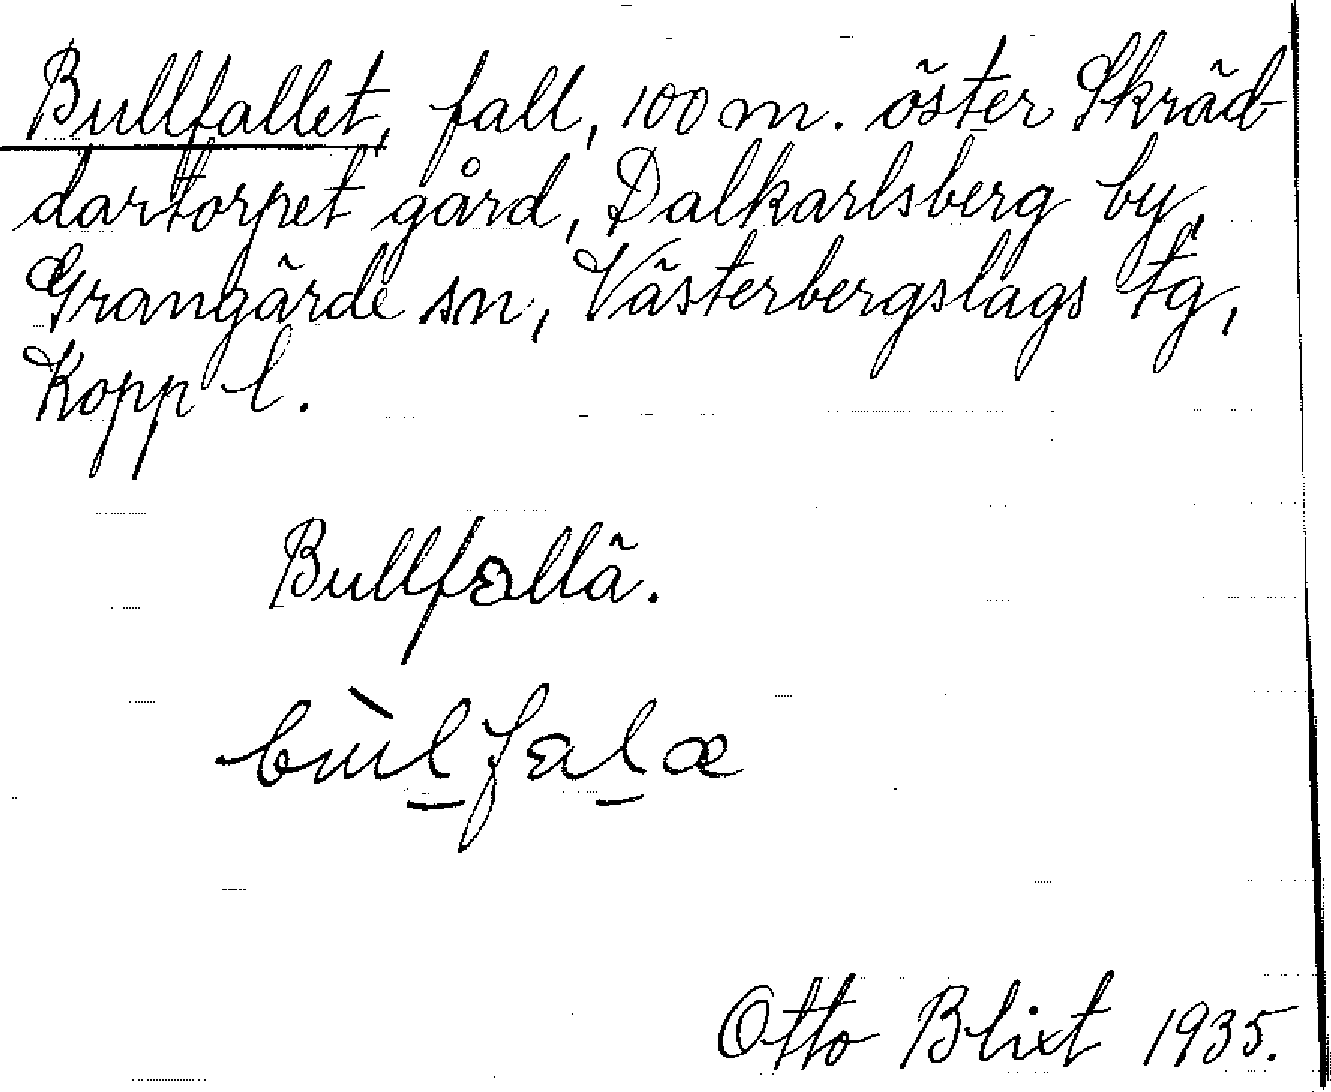 Bullfallet, fall, 100 m. öster Skräd-
dartorpet gård, Dalkarlsberg by,
Grangärde sn, Västerbergslags fg,
Kopp l.
Bullfallä.
bùlfalæ
Otto Blixt 1935.